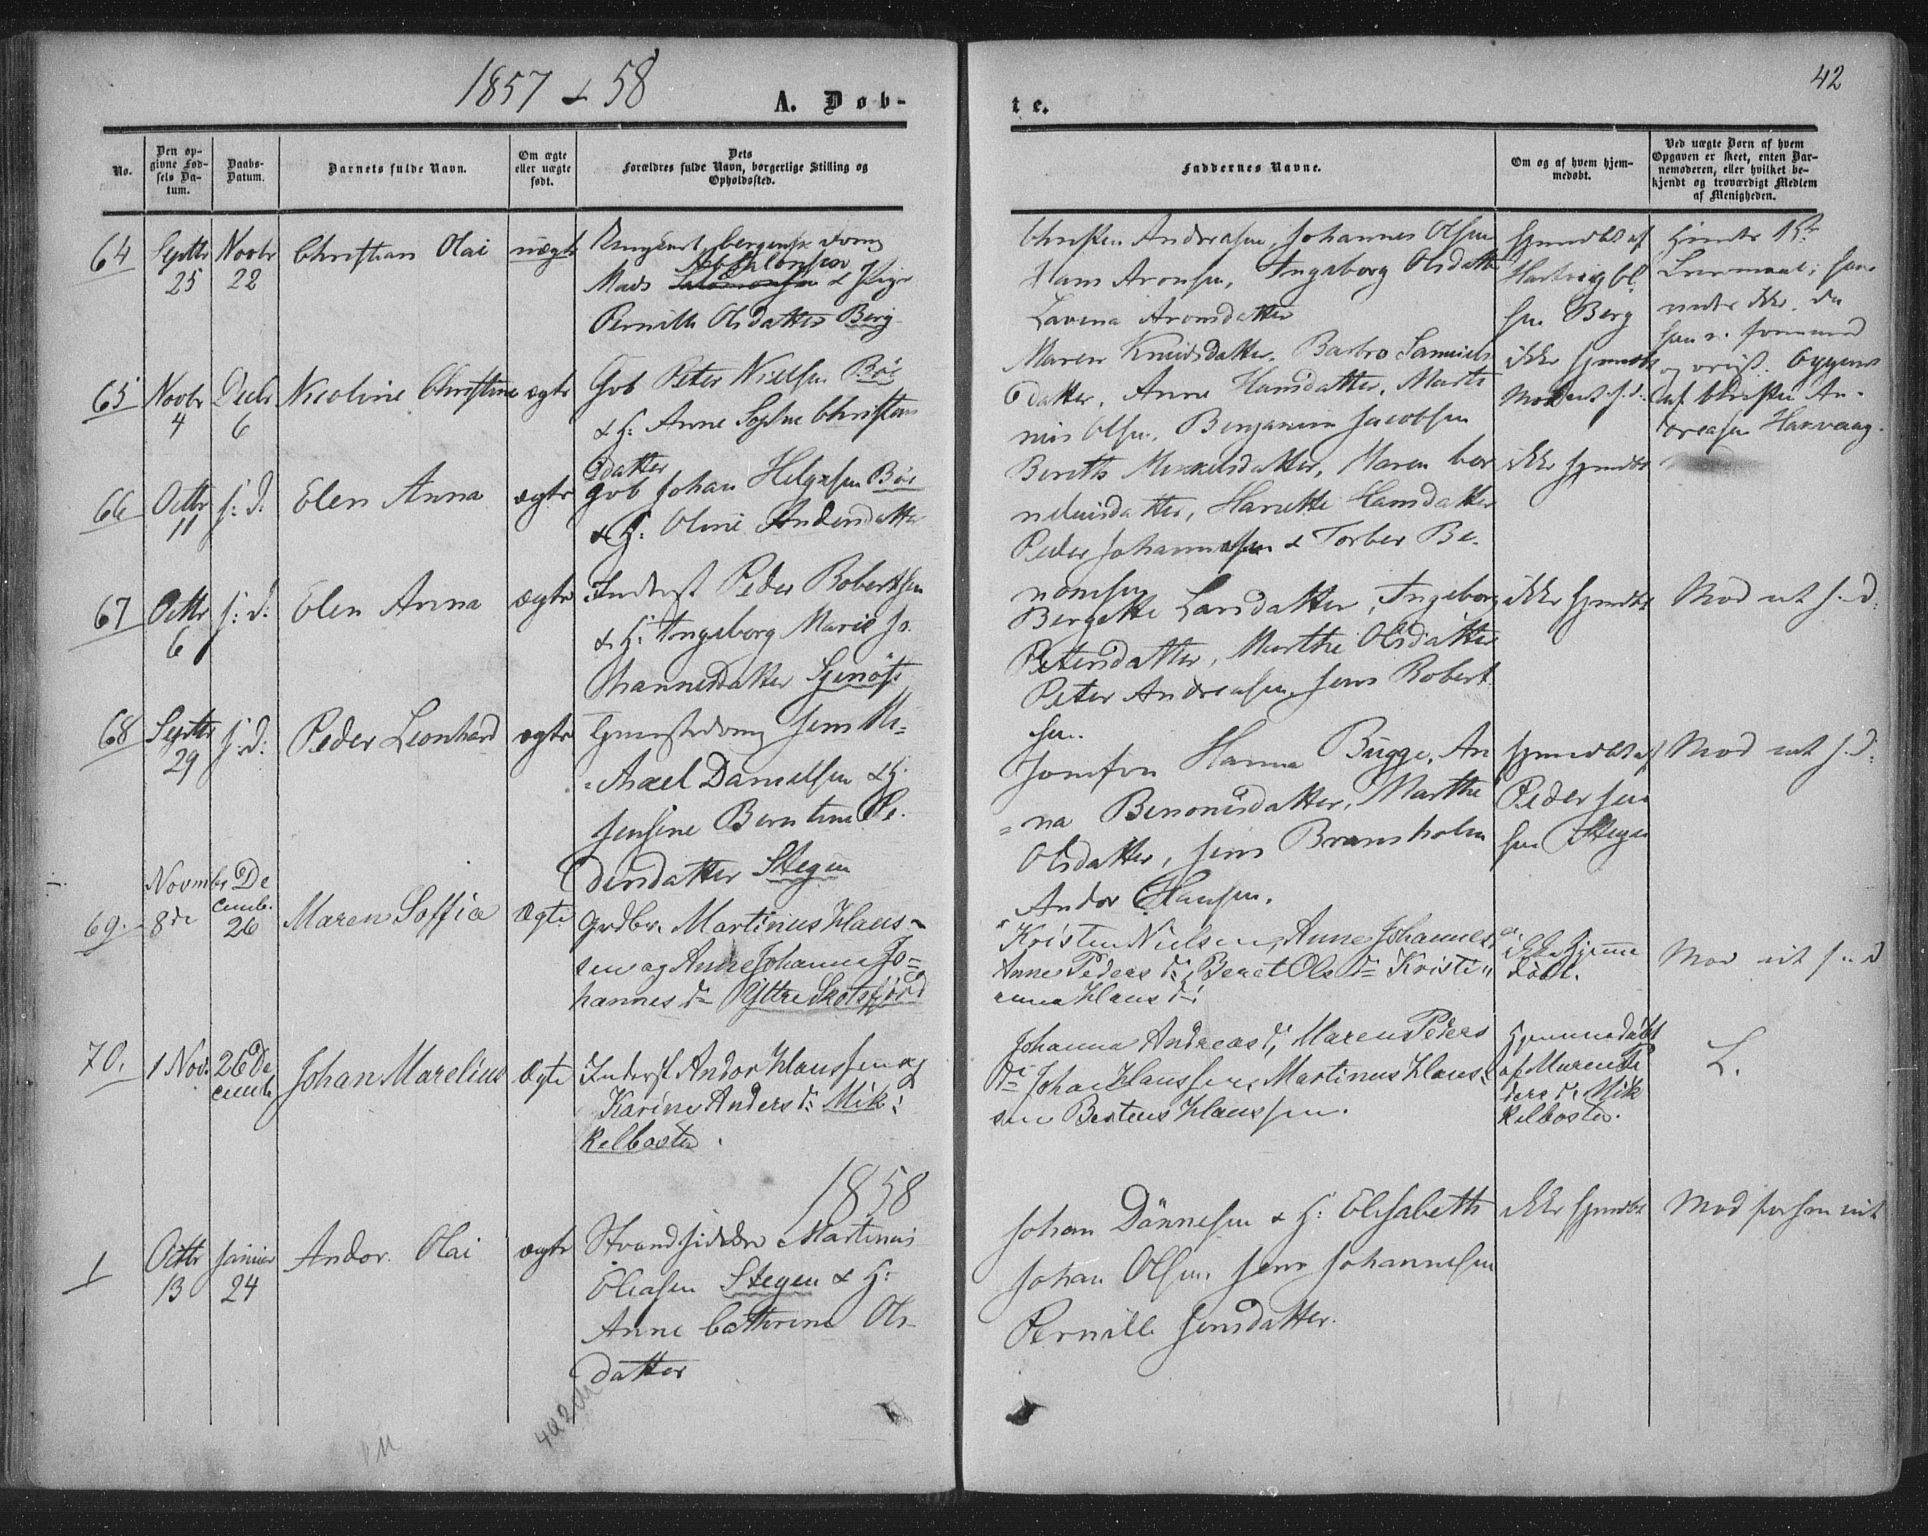 1857 & 58
A. Døb-
te.
42
No.
Den op-
givne Fød-
sels Da-
tum.
Daabs-
Datum.
Barnets fulde Navn.
Om ægte
eller uægte
født.
Dets
Forældres fulde Navn, borgerlige Stilling og
Opholdssted.
Faddernes Navne.
Om og af hvem hjem-
medøbt.
Ved uægte Børn af hvem
Opgaven er skeet, enten Bar-
nemoderen, eller hvilket be-
kjendt og troværdigt Medlem
af Menigheden.
64
Septbr
25
Novbr
22
Christian Olai
uægte
Mads & Pige
Pernille Olsdatter Berg
Christen Andreasen, Johannes Olsen
Hans Aronsen, Ingeborg Olsdatter
Lavena Aronsdatter
Hjemdbt af
Hartvig Ol-
sen Berg
Leiermaal;
Andreasen
65
Novbr
4
Decbr
6
Nicoline Christine
ægte
Gb Peter Nielsen Böe
& H: Anne Sophie Christians
datter
Maren Knudsdatter, Barbro Samuels
datter, Anne Hansdatter, Marti
nus Olsen, Benjamin Jacobsen
ikke hjemdbt
66
Octbr
11
s: d:
Elen Anna
ægte
Gb Johan Helgesen Böe
& H: Oline Andersdatter
Bereth Mikkelsdatter, Maren Cor
neliusdatter, Hansdatter
Peder Johannessen & Torber Be-
nonisen
ikke hjemdbt
67
Octbr
6
s: d:
Elen Anna
ægte
Inderst Peder Robertsen
& H: Ingeborg Marie Jo-
hannesdatter
Bergette Larsdatter, Ingeborg
Petersdatter, Marthe Olsdatter
Peter Andreasen, Jens Robert
sen.
ikke hjemdbt
Mod vit s. d:
68
Septbr
29
s: d:
Peder Leonhard
ægte
Jens Mi-
chael Danielsen & H:
Jensine Berntine Pe-
dersdatter Stegen
Jomfru Hanna Bugge, An
na Benonisdatter, Marthe
Olsdatter, Jens Bramsholm
Andor Hansen.
hjemdbt af
Peder Jen
sen Stegen
Mod vit s. d:
69.
Novmbr
8de
De
cemb.
26
Maren Soffie
Ægte
Grdbr. Martinus Klaus-
sen og Anne Johanna Jo=
hannes d. Ytre Skotsfjord
Kristen Nielsen, Anne Johannes d.
Anne Peders d: Beret Ols d. Kristi
anna Klaus d:
ikke Hjemme
döbt.
Mod vit s. d
70.
1 Nov.
26 De
cemb.
Johan Marelius
Ægte
Inderst Andor Klaussen og
Karine Anders d: Mik-
kelbosten.
Johanna Andreas d; Maren Peders
d. Johan Klaussen, Martinus Klaus-
sen Klaussen.
Hjemmedöbt
af Maren Pe
ders d: Mik
kelbosten.
L.
1858
1
Octbr
13
Januar
24
Andor Olai
ægte
Strandsidder Martinus
Eliasen Stegen & H:
Anne Cathrine Ols-
datter
Johan Dönnesen & H: Elisabeth
Johan Olsen, Jens Johannesen
Pernille Jensdatter.
ikke hjemdbt
Mod vit